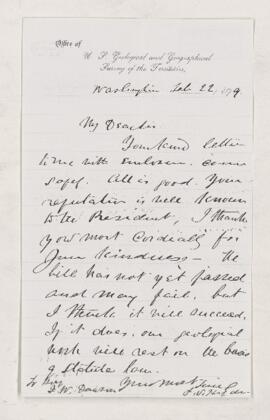 Office of
U. S. Geological and Geographical
Survey of the Territories,
Washington Feb. 22, 1879.
My Dear Sir
Your kind letter
to me with enclosure came
safely. All is good. Your
reputation is well known
to the President, I thank
you most cordially for
your kindness – The
bill has not yet passed
and may fail, but
I think it will succeed.
If it does, our geological
work will rest on the basis
of statute law.
Yours most
J. W. Dawson